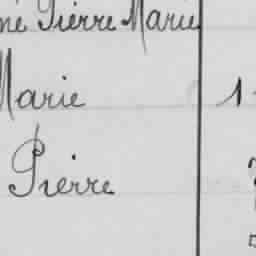 né Pierre Marie
Marie 1
Pierre